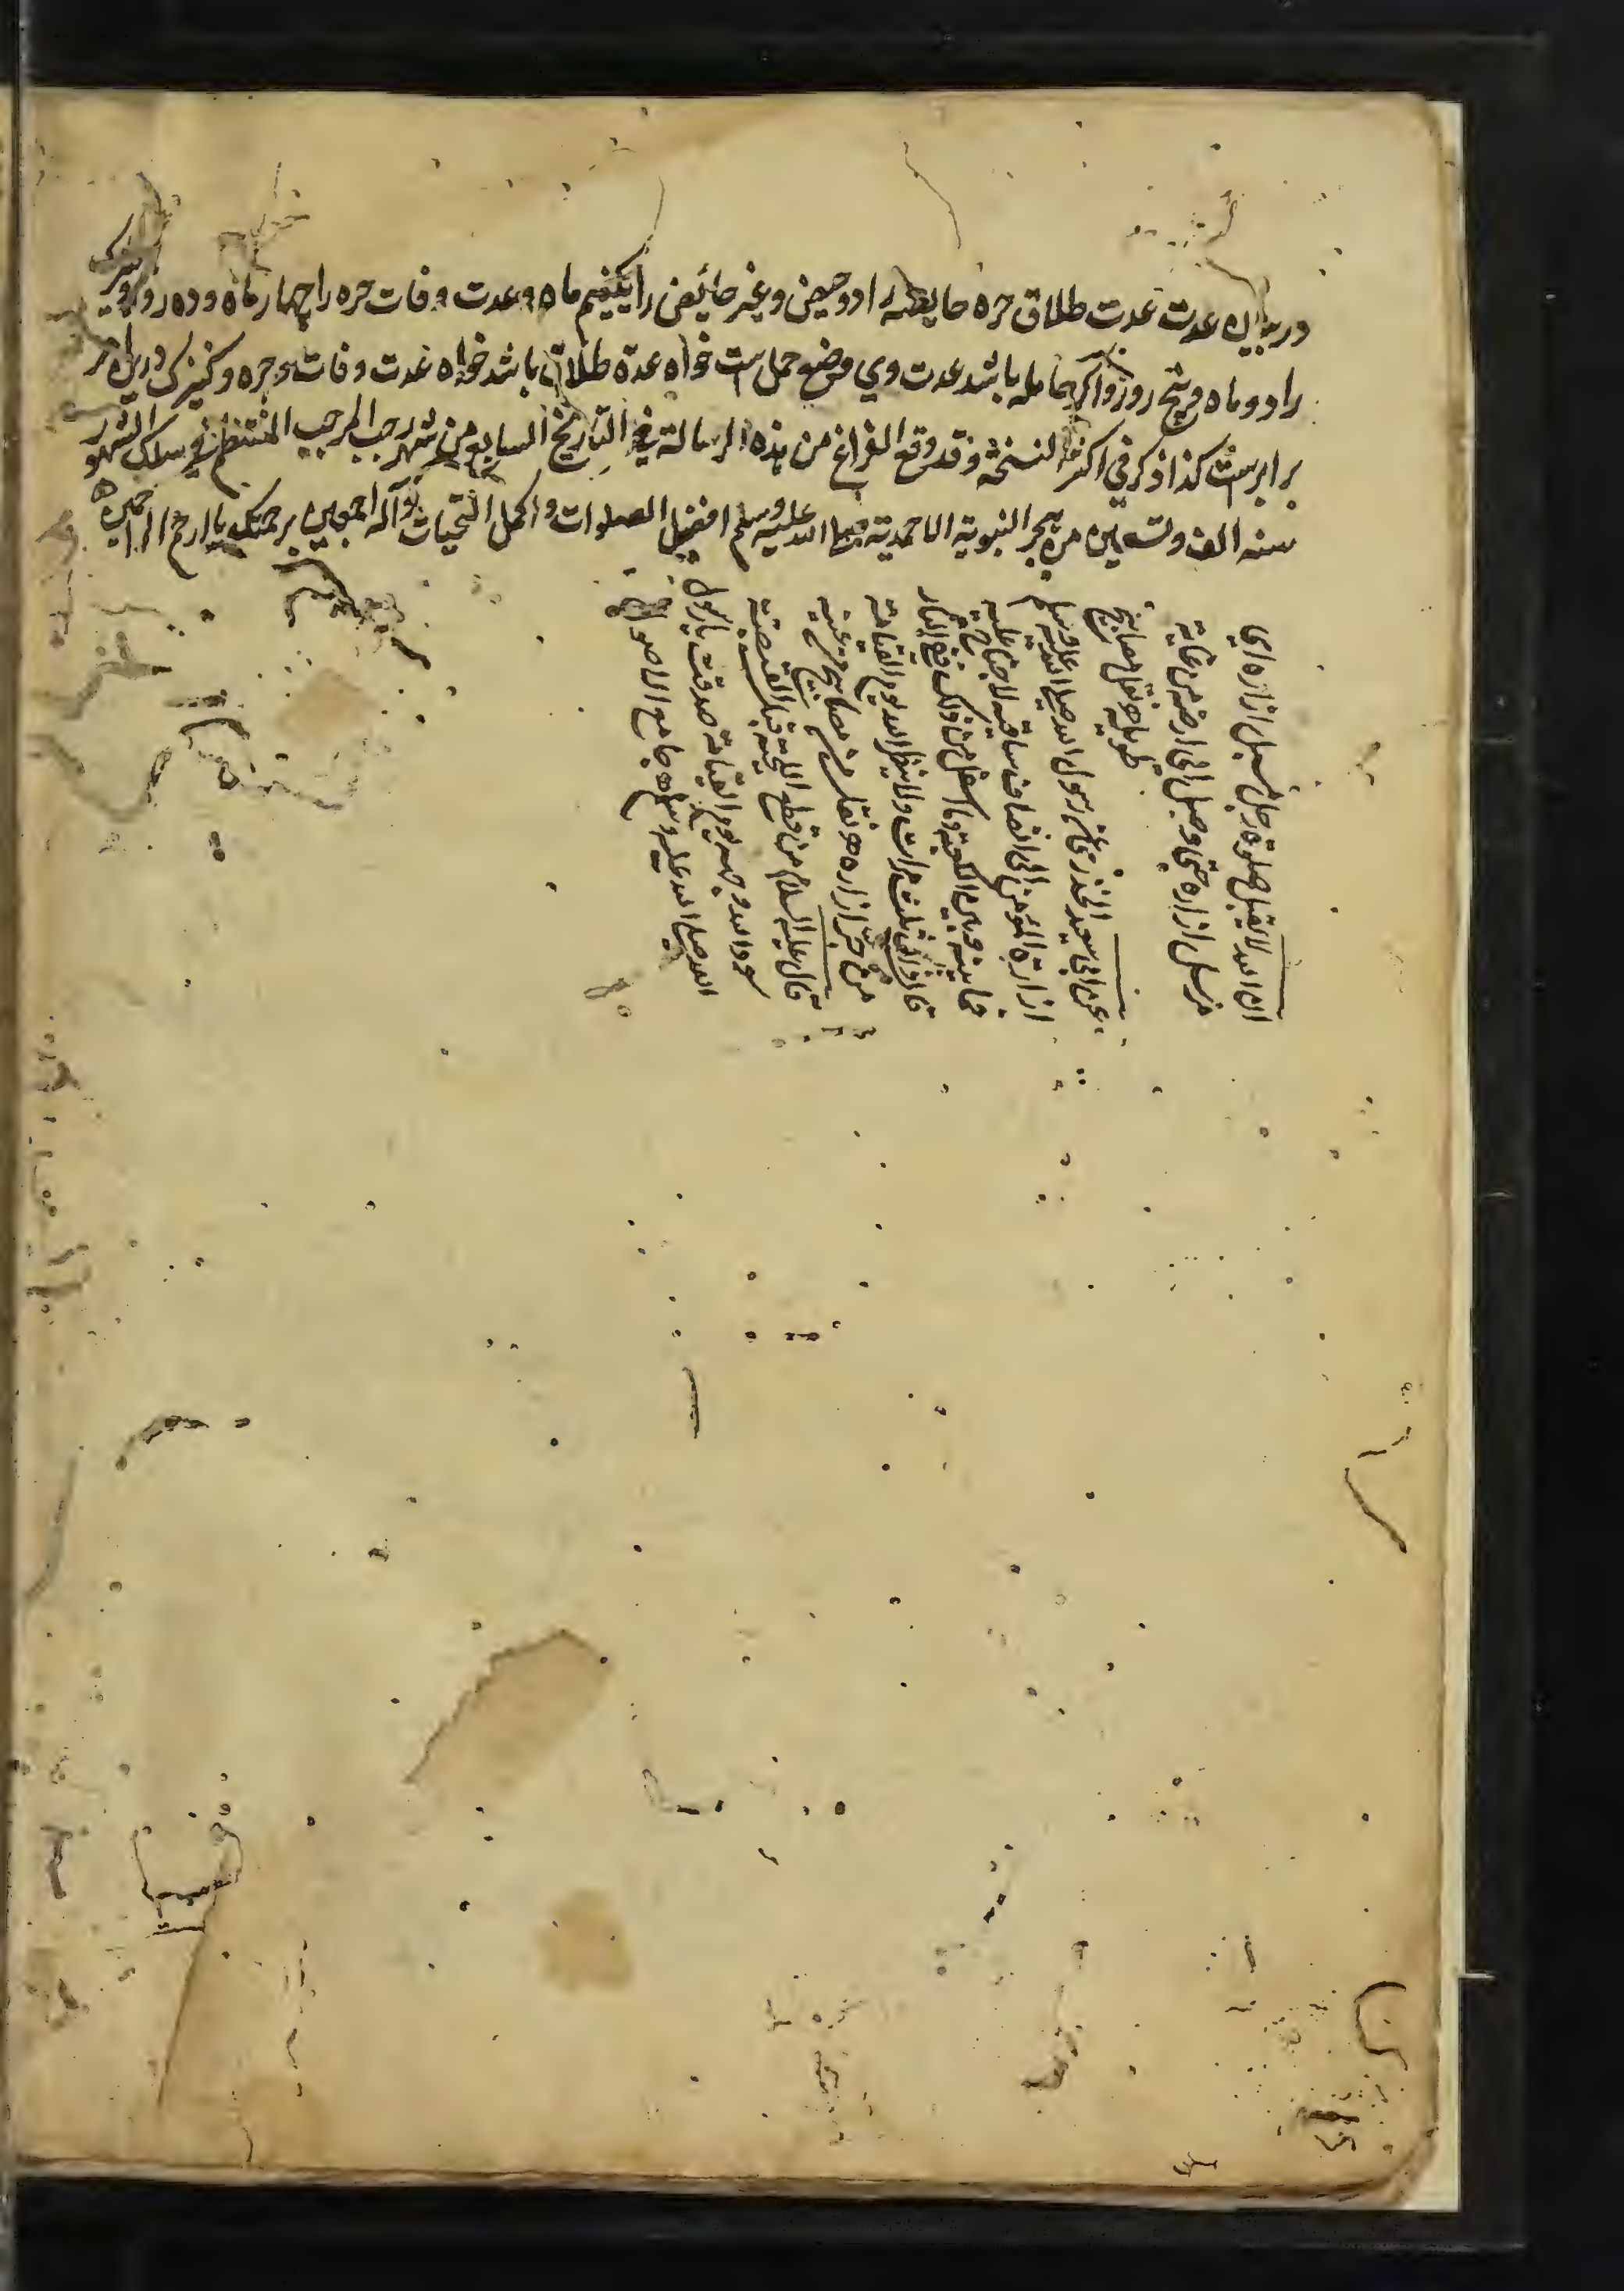 در بیان عدت عدت طلاق حره حایضه را دو حیض و غیر حائض را یکنیم ماه و عدت وفات حره را چهار ماه و ده روز و سرک
را دو ماه و پنج روز و اکر حامله باشد عدت وی وضع حمل است خواه عدة طلاق باشد خواه عدت وفات و حره و کنیزک درین امر
برابرست کذا ذکر فی اکثر النسخة و قد وقع الفراغ من هذه الرسالة فی التاریخ السابع من شهر رجب المرجب المنتظم فی سلک الشهور
سنه الف و تسعین من هجر النبویة الاحمدیة صلی الله علیه وسلم افضل الصلوات و اکمل التحیات و آله اجمعین برحمتک یا ارحم الراحمین
ان الله لا یقبل صلوة رجل مسبل ازاره ای
مرسل ازاره حتی وصل الی ارض من غایة
طویله نقل مصابیح
عن ابی سعید الخذری قال رسول الله صلی الله علیه وسلم
ازارة المؤمن الی انصاف ساقیه لا جناح علیه
فما بینه و بین الکعبین و ما اسفل من ذلک ففی النار
قال ذلک ثلث مرات و لا ینظر الله یوم القیامة
من جر ازاره نقل من مصابیح
قال علیه السلام من قطع اللحیة قبل القبضة
سود الله وجهه یوم القیامة صدقت یا رسول
الله صلی الله علیه وسلم جامع الاصول